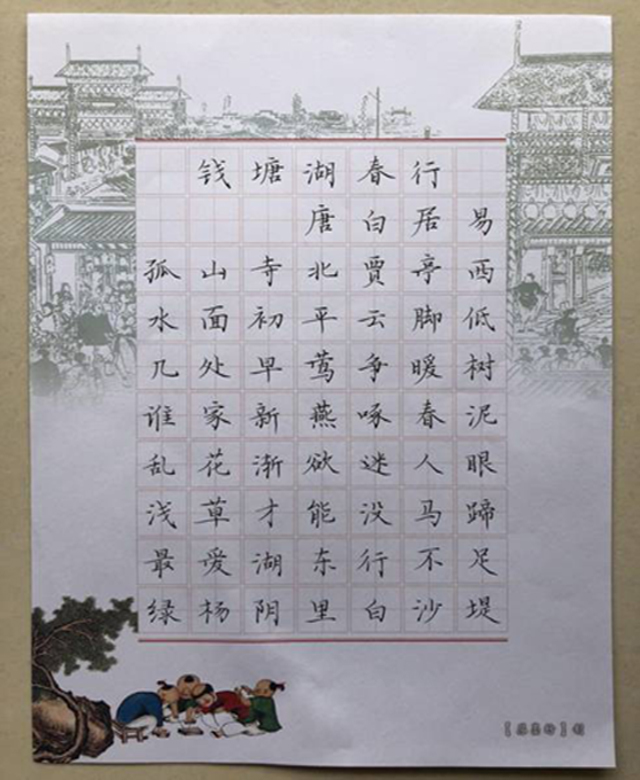 钱塘湖春行
唐 白居易
孤山寺北贾亭西
水面初平云脚低
几处早莺争暖树
谁家新燕啄春泥
乱花渐欲迷人眼
浅草才能没马蹄
最爱湖东行不足
绿杨阴里白沙堤